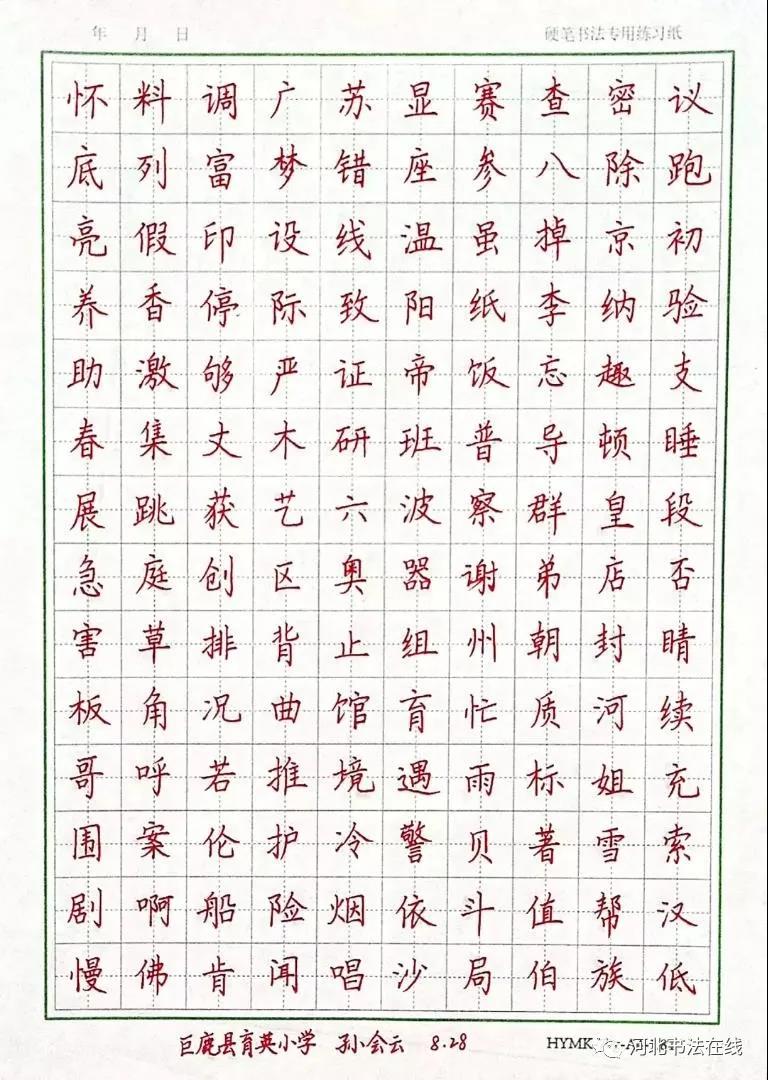 年 月 日 硬笔书法专用练习纸
怀料调广苏显赛查密议
底列富梦错座参八除跑
亮假印设线温虽掉京初
养香停际致阳纸李纳验
助激够严证帝饭忘趣支
春集丈木研班普导顿睡
展跳获艺六波察群皇段
急庭创区奥器谢弟店否
害草排背止组州朝封晴
板角况曲馆育忙质河续
哥呼若推境遇雨标姐充
围案伦护冷警贝著雪索
剧啊船险烟依斗值帮汉
慢佛肯闻唱沙局伯族低
巨鹿县育英小学 孙会云 8.28 HYMK
河北书法在线